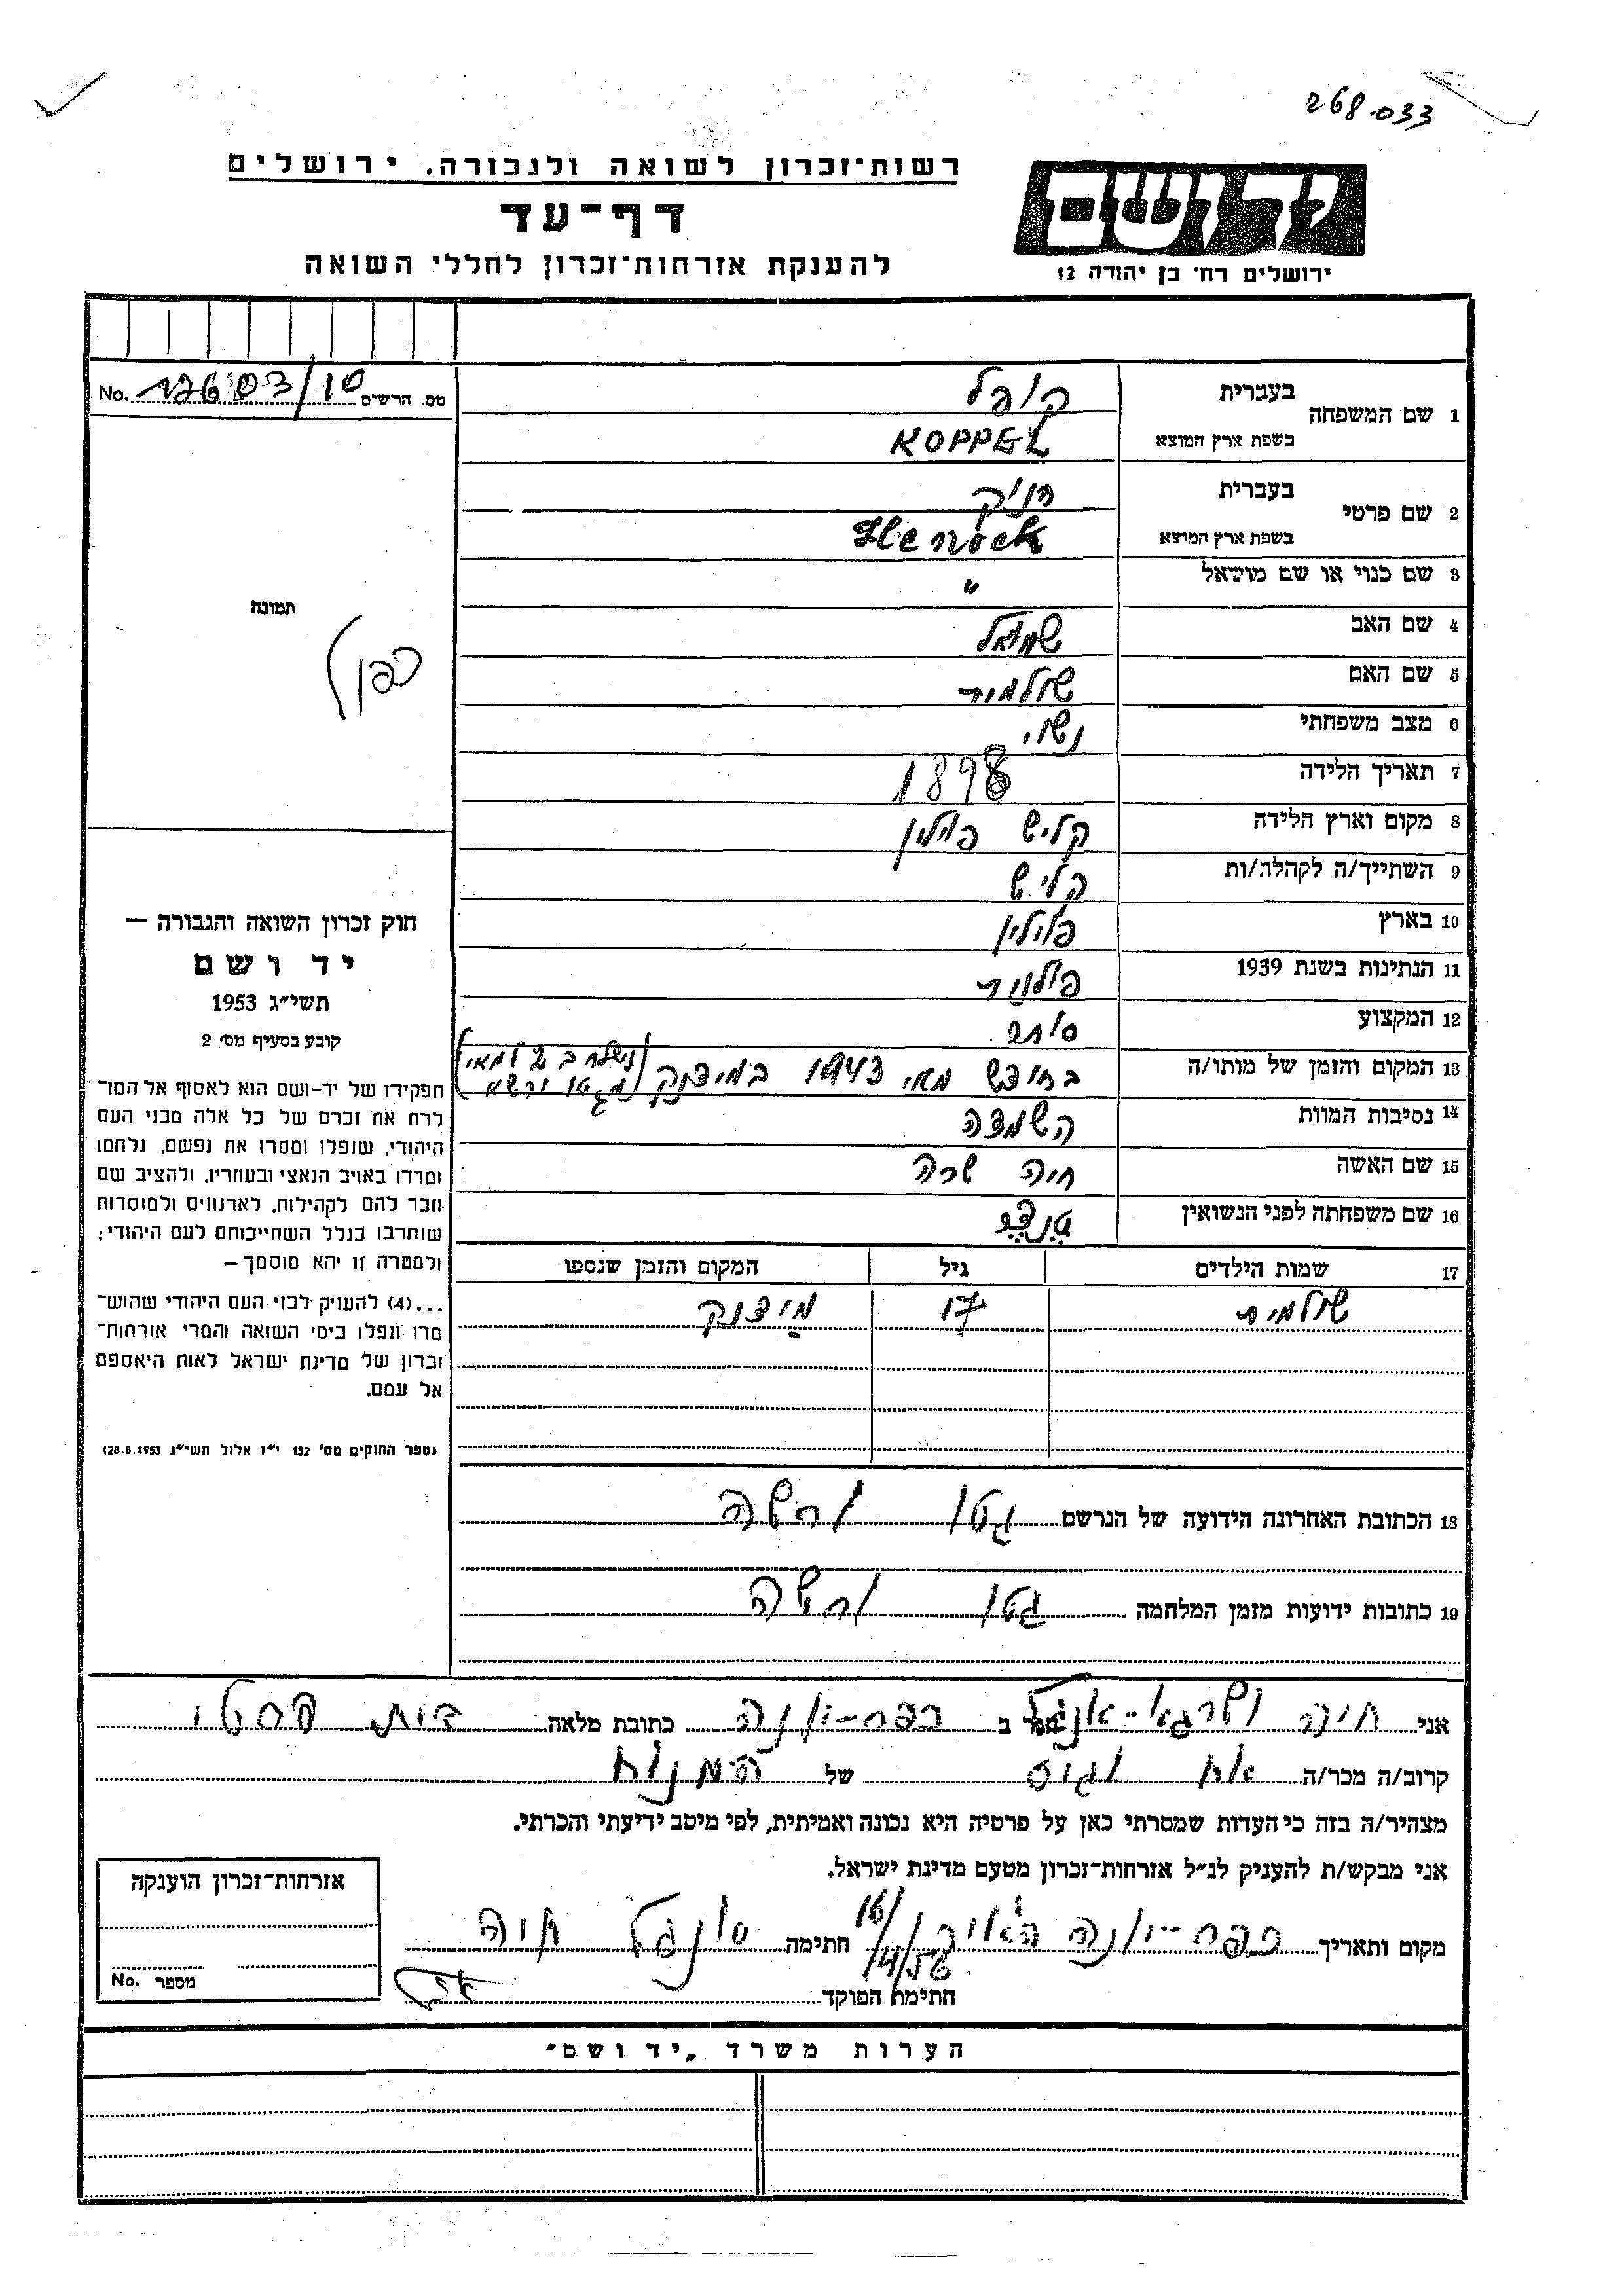 268033
רשות־זכרון לשואה ולגבורה. ירושלים
דף־עד
להענקת אזרחות־זכרון לחללי השואה
ידושם
ירושלים רח׳ בן יהודה 12
מס. הרשים No. 12603/10
1 שם המשפחה בעברית קופל
בשפת ארץ המוצא KOPPEL
2 שם פרטי בעברית הניק
בשפת ארץ המוצא Henock
3 שם כנוי או שם מושאל "
4 שם האב שמואל
5 שם האם שולמית
6 מצב משפחתי נשוי
7 תאריך הלידה 1898
8 מקום וארץ הלידה קליש פולין
9 השתייך/ה לקהלה/ות קליש
10 בארץ פולין
11 הנתינות בשנת 1939 פולנית
12 המקצוע סוחר
13 המקום והזמן של מותו/ה בחודש מאי 1943 במידנק (נשלח ב 2 למאי מגטו ורשא)
14 נסיבות המוות השמדה
15 שם האשה חיה שרה
16 שם משפחתה לפני הנשואין
17 שמות הילדים גיל המקום והזמן שנספו
שולמית 17 מידנק
18 הכתובת האחרונה הידועה של הנרשם גטו ורשה
19 כתובות ידועות מזמן המלחמה גטו ורשה
תמונה
חוק זכרון השואה והגבורה —
יד ושם
תשי״ג 1953
קובע בסעיף מס׳ 2
תפקידו של יד-ושם הוא לאסוף אל המו־
לדת את זכרם של כל אלה מבני העם
היהודי, שנפלו ומסרו את נפשם, נלחמו
ומרדו באויב הנאצי ובעוזריו, ולהציב שם
וזכר להם לקהילות, לארגונים ולמוסדות
שנחרבו בגלל השתייכותם לעם היהודי;
ולמטרה זו יהא מוסמך —
...(4) להעניק לבני העם היהודי שהוש־
מדו ונפלו בימי השואה והמרי אזרחות־
זכרון של מדינת ישראל לאות היאספם
אל עמם.
(ספר החוקים מס׳ 132 י״ז אלול תשי״ג 28.8.1953)
אני חיה הגר ב כפר-יונה כתובת מלאה בית פרטי
קרוב/ה מכר/ה של המנוח
מצהיר/ה בזה כי העדות שמסרתי כאן על פרטיה היא נכונה ואמיתית, לפי מיטב ידיעתי והכרתי.
אני מבקש/ת להעניק לנ״ל אזרחות־זכרון מטעם מדינת ישראל.
מקום ותאריך כפר-יונה 16/4/56 חתימה חיה
חתימת הפוקד
אזרחות־זכרון הוענקה
מספר No.
הערות משרד „יד ושם״